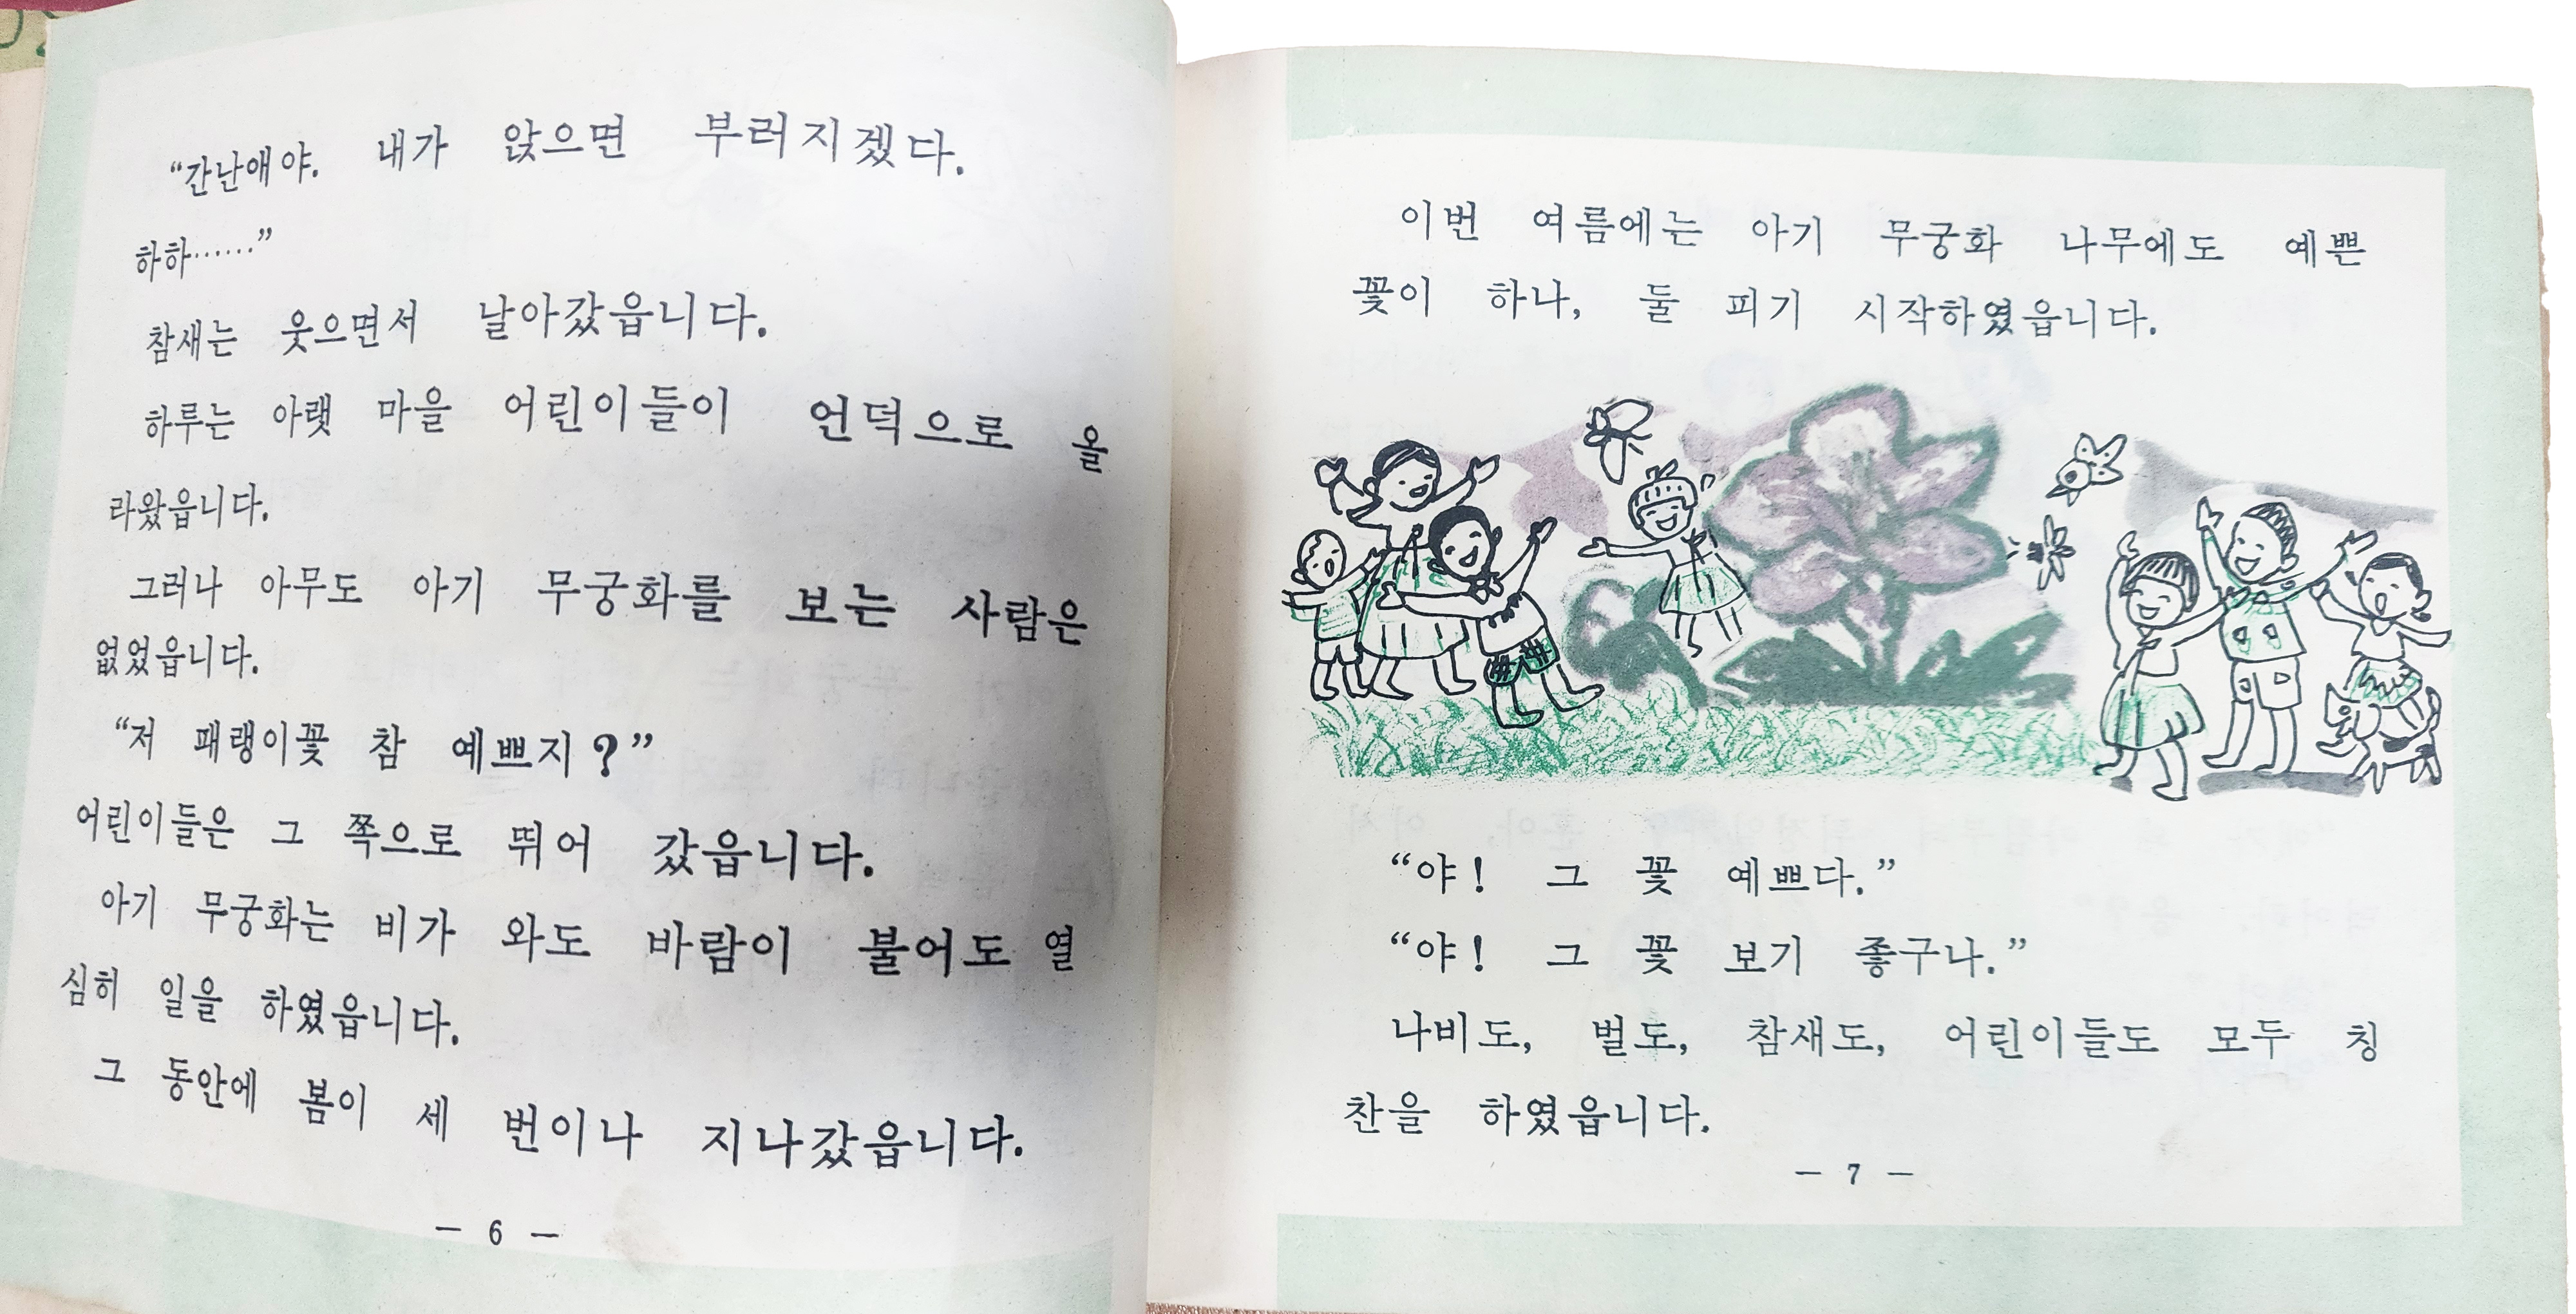 “간난애야. 내가 앉으면 부러지겠다.
하하……”
참새는 웃으면서 날아갔읍니다.
하루는 아랫 마을 어린이들이 언덕으로 올
라왔읍니다.
그러나 아무도 아기 무궁화를 보는 사람은
없었읍니다.
“저 패랭이꽃 참 예쁘지?”
어린이들은 그 쪽으로 뛰어 갔읍니다.
아기 무궁화는 비가 와도 바람이 불어도 열
심히 일을 하였읍니다.
그 동안에 봄이 세 번이나 지나갔읍니다.
— 6 —
이번 여름에는 아기 무궁화 나무에도 예쁜
꽃이 하나, 둘 피기 시작하였읍니다.
“야! 그 꽃 예쁘다.”
“야! 그 꽃 보기 좋구나.”
나비도, 벌도, 참새도, 어린이들도 모두 칭
찬을 하였읍니다.
— 7 —